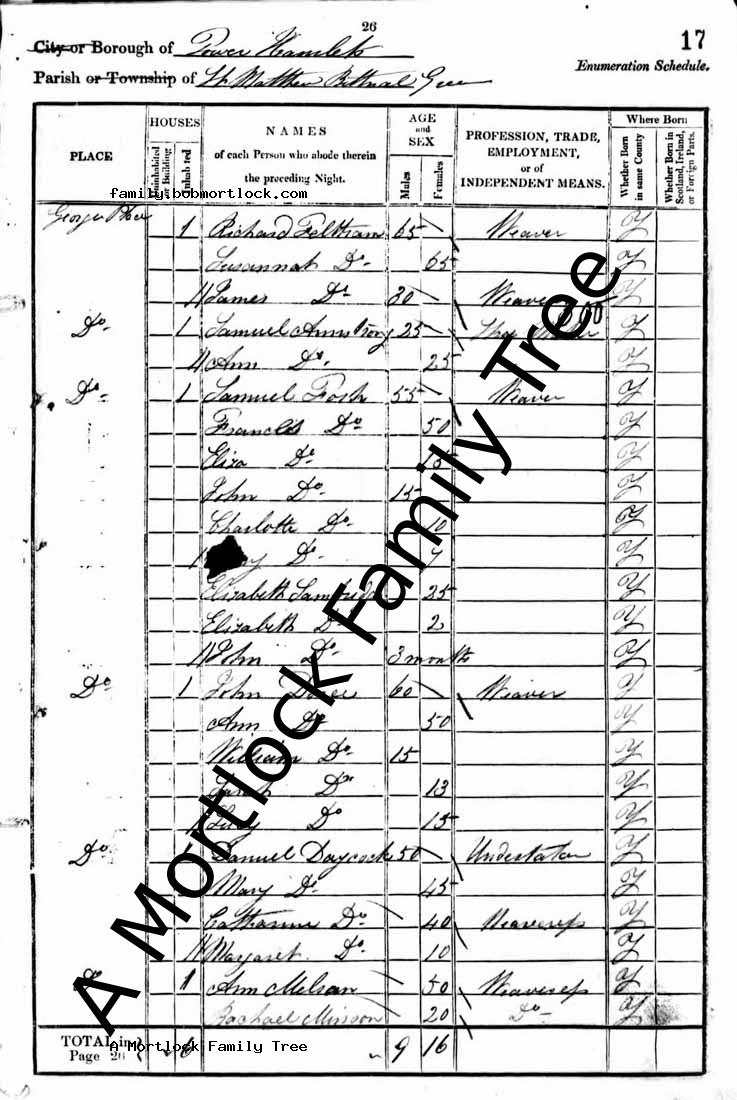 26
17
City or Borough of Tower Hamlets
Enumeration Schedule.
Parish or Township of St Matthew Bethnal Green
PLACE
HOUSES
Uninhabited or Building
Inhabited
NAMES
of each Person who abode therein
the preceding Night.
AGE
and
SEX
Males
Females
PROFESSION, TRADE,
EMPLOYMENT,
or of
INDEPENDENT MEANS.
Where Born
Whether Born in same County
Whether Born in Scotland, Ireland, or Foreign Parts.
family.bobmortlock.com
George Place 1 Richard Feltham 65 Weaver Y
Susannah Do 65 Y
James Do 30 Weaver Y
Do 1 Samuel Armstrong 25 Y
Ann Do 25 Y
Do 1 Samuel Fosh 55 Weaver Y
Frances Do 50 Y
Eliza Do 15 Y
John Do 15 Y
Charlotte Do 10 Y
Do 7 Y
Elizabeth 25 Y
Elizabeth Do 2 Y
John Do 3 months Y
Do 1 John 60 Weaver Y
Ann Do 50 Y
William Do 15 Y
Sarah Do 13 Y
Lucy Do 15 Y
Do 1 Samuel Daycock 50 Undertaker Y
Mary Do 45 Y
Catharine Do 40 Weaveress Y
Margaret Do 10 Y
1 Ann 50 Weaveress Y
Rachael Minson 20 Do Y
TOTAL in
Page 26 6 9 16
A Mortlock Family Tree
A Mortlock Family Tree